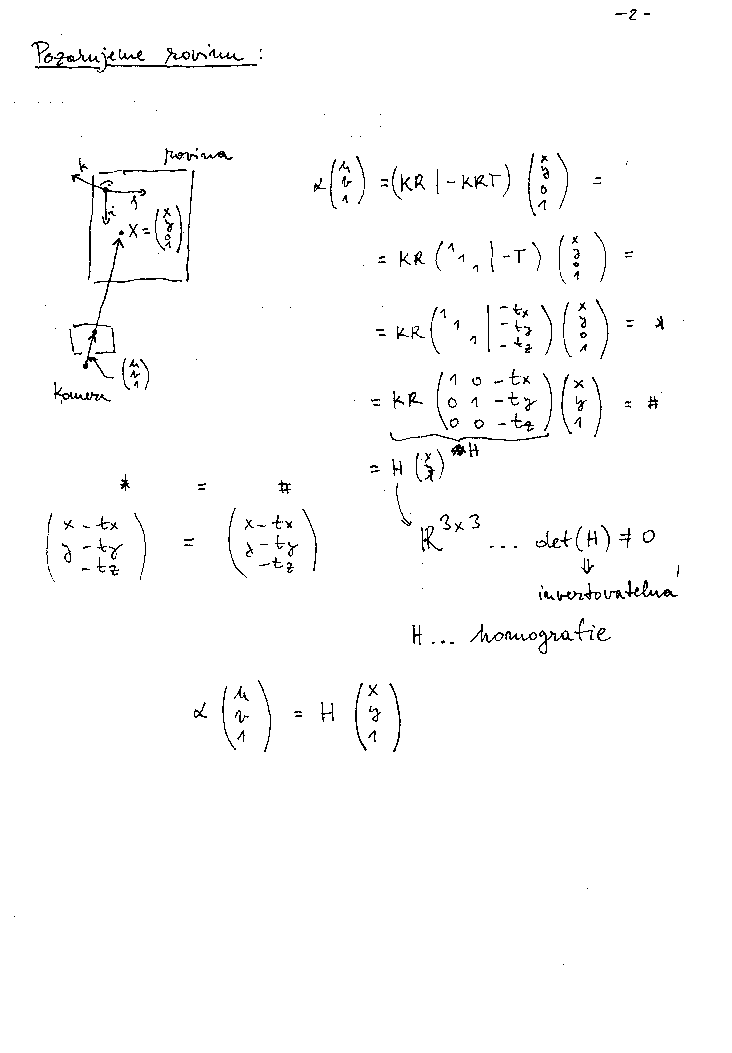 -2-
Pozorujeme rovinu :
rovina
k
j
i
X = (x y 0 1)
(u v 1)
Kamera
α (u v 1) = (KR | -KRT) (x y 0 1) =
= KR (1 1 1 | -T) (x y 0 1) =
= KR (1 1 1 | -tx -ty -tz) (x y 0 1) = *
= KR (1 0 -tx 0 1 -ty 0 0 -tz) (x y 1) = #
H
= H (x y 1)
* = #
(x - tx y - ty -tz) = (x - tx y - ty -tz)
ℝ 3x3 ... det(H) ≠ 0
⇓
invertovatelná
H ... homografie
α (u v 1) = H (x y 1)